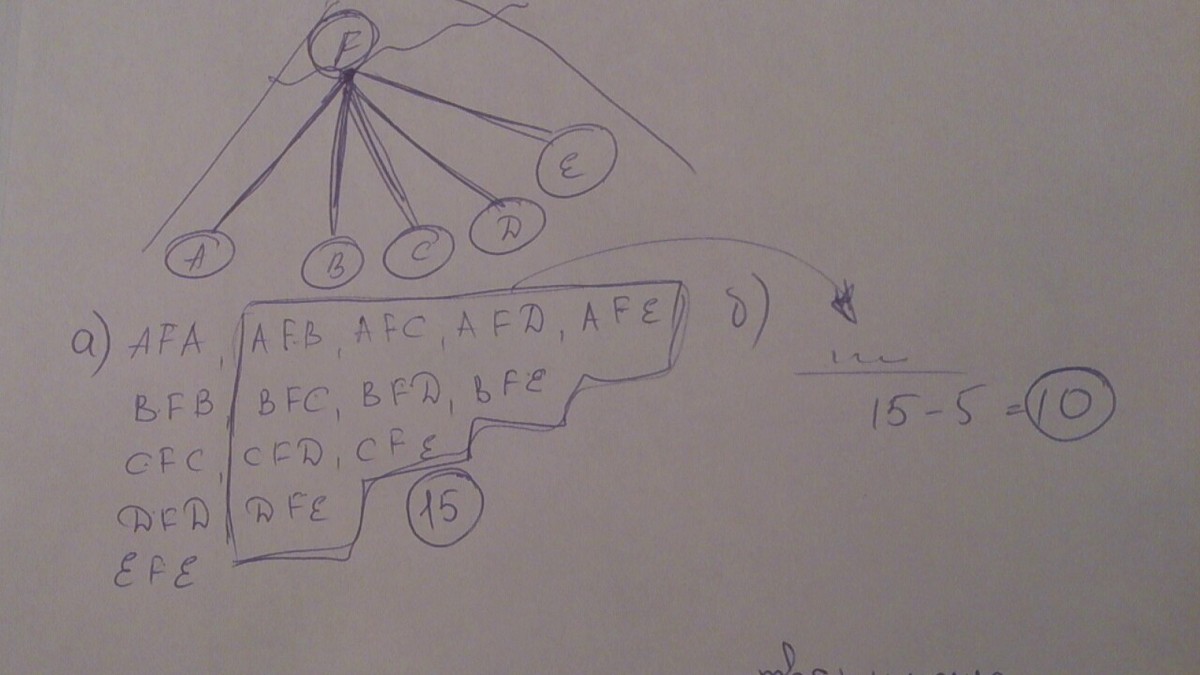 F
A B C D E
а) AFA, AFB, AFC, AFD, AFE
BFB, BFC, BFD, BFE
CFC, CFD, CFE
DFD DFE
EFE
15
б)
15-5=10